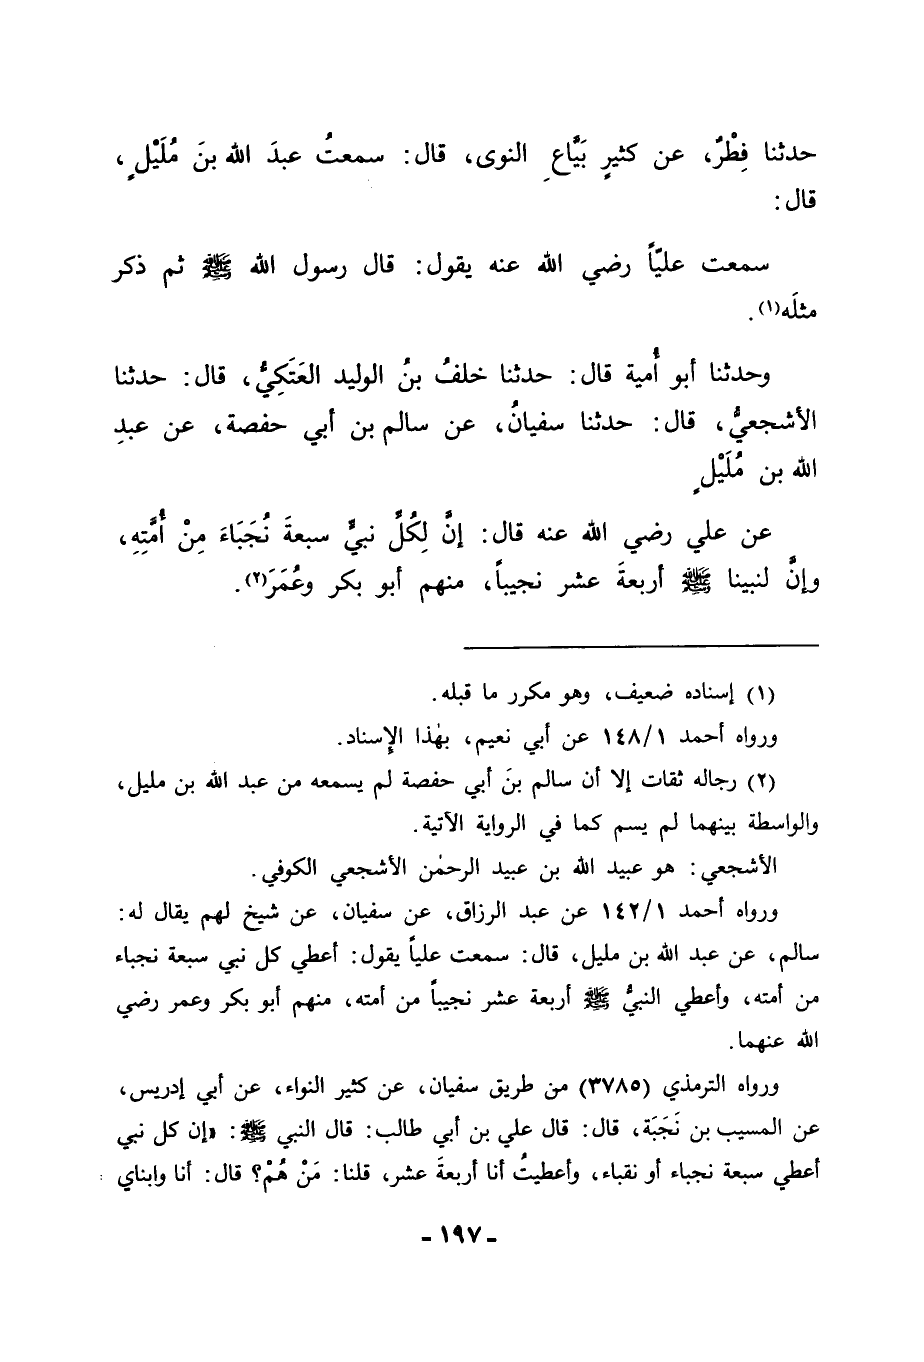 حدثنا فِطْرٌ، عن كثيرٍ بَيَّاعِ النوى، قال: سمعتُ عبدَ الله بنَ مُلَيْلٍ،
قال:
سمعت عليّاً رضي الله عنه يقول: قال رسول الله ﷺ ثم ذكر
مثلَه(١).
وحدثنا أبو أُمية قال: حدثنا خلفُ بنُ الوليد العَتَكِيُّ، قال: حدثنا
الأشجعيُّ، قال: حدثنا سفيانُ، عن سالم بن أبي حفصة، عن عبدِ
الله بن مُلَيْلٍ
عن علي رضي الله عنه قال: إنَّ لِكُلِّ نبيٍّ سبعةَ نُجَبَاءَ مِنْ أُمَّتِهِ،
وإنَّ لنبينا ﷺ أربعةَ عشر نجيباً، منهم أبو بكر وعُمَرَ(٢).
(١) إسناده ضعيف، وهو مكرر ما قبله.
ورواه أحمد ١٤٨/١ عن أبي نعيم، بهٰذا الإِسناد.
(٢) رجاله ثقات إلا أن سالم بنَ أبي حفصة لم يسمعه من عبد الله بن مليل،
والواسطة بينهما لم يسم كما في الرواية الآتية.
الأشجعي: هو عبيد الله بن عبيد الرحمٰن الأشجعي الكوفي.
ورواه أحمد ١٤٢/١ عن عبد الرزاق، عن سفيان، عن شيخ لهم يقال له:
سالم، عن عبد الله بن مليل، قال: سمعت علياً يقول: أعطي كل نبي سبعة نجباء
من أمته، وأعطي النبيُّ ﷺ أربعة عشر نجيباً من أمته، منهم أبو بكر وعمر رضي
الله عنهما.
ورواه الترمذي (٣٧٨٥) من طريق سفيان، عن كثير النواء، عن أبي إدريس،
عن المسيب بن نَجَبَة، قال: قال علي بن أبي طالب: قال النبي ﷺ: «إن كل نبي
أعطي سبعة نجباء أو نقباء، وأعطيتُ أنا أربعةَ عشر، قلنا: مَنْ هُمْ؟ قال: أنا وابناي
- ١٩٧ -